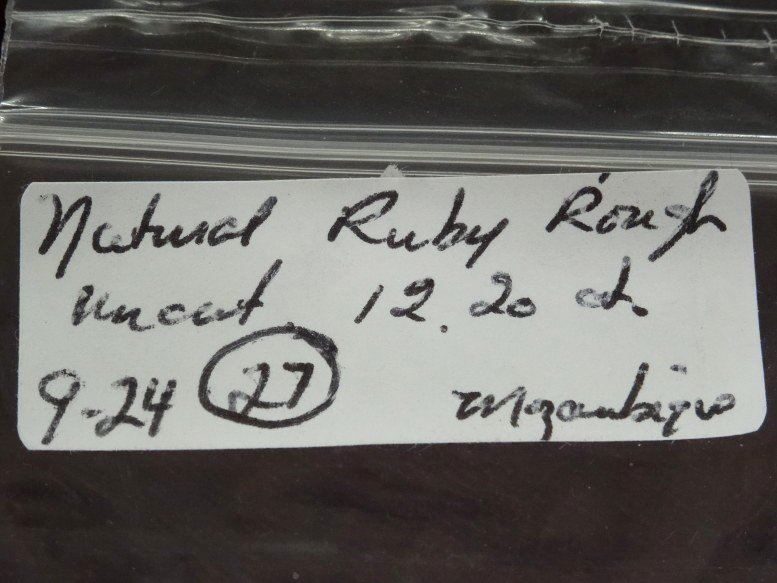 Natural Ruby Rough
uncut 12.20 ct.
9-24 27 Mozambique